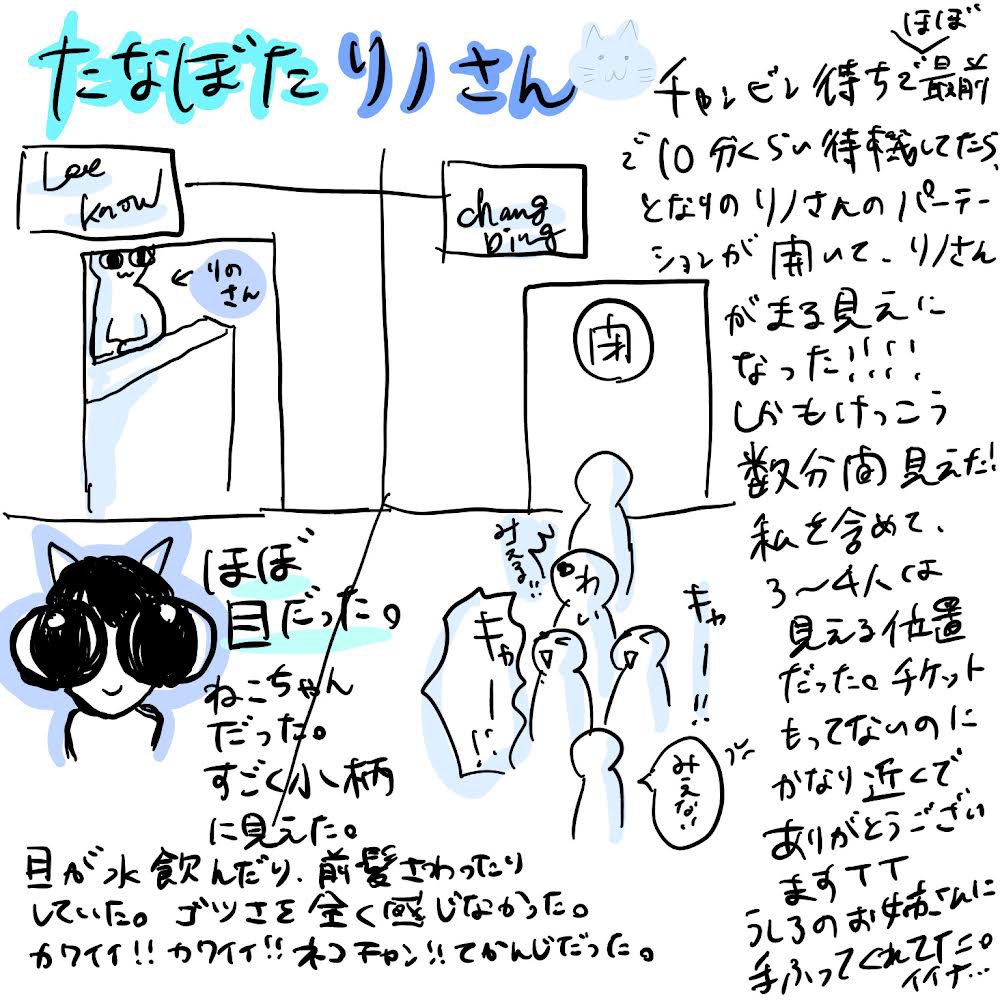 たなぼた リノさん
Lee
know
りの
さん
chang
bing
閉
ほぼ
チャンビン待ちで最前
で10分くらい待機してたら、
となりのリノさんのパーテー
ションが開いて、リノさん
がまる見えに
なった!!!!
しかもけっこう
数分間見えた!
私を含めて、
3〜4人は
見える位置
だった。チケット
もってないのに
かなり近くで
ありがとうござい
ますTT
うしろのお姉さんに
手ふってくれてた。
イイナ…
みえる!!
わし
キャー!!
キャー!!
みえない
ほぼ
目だった。
ねこちゃん
だった。
すごく小柄
に見えた。
目が水飲んだり、前髪さわったり
していた。ゴツさを全く感じなかった。
カワイイ!! カワイイ!! ネコチャン!! てかんじだった。